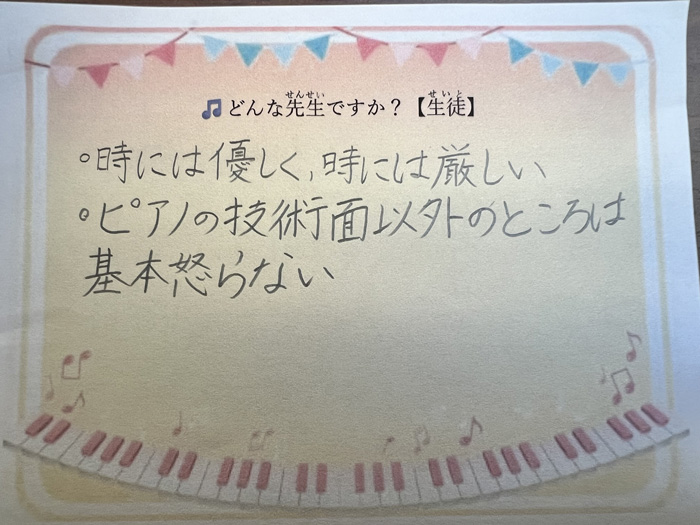 どんな先生ですか？【生徒】
○時には優しく,時には厳しい
○ピアノの技術面以外のところは
基本怒らない